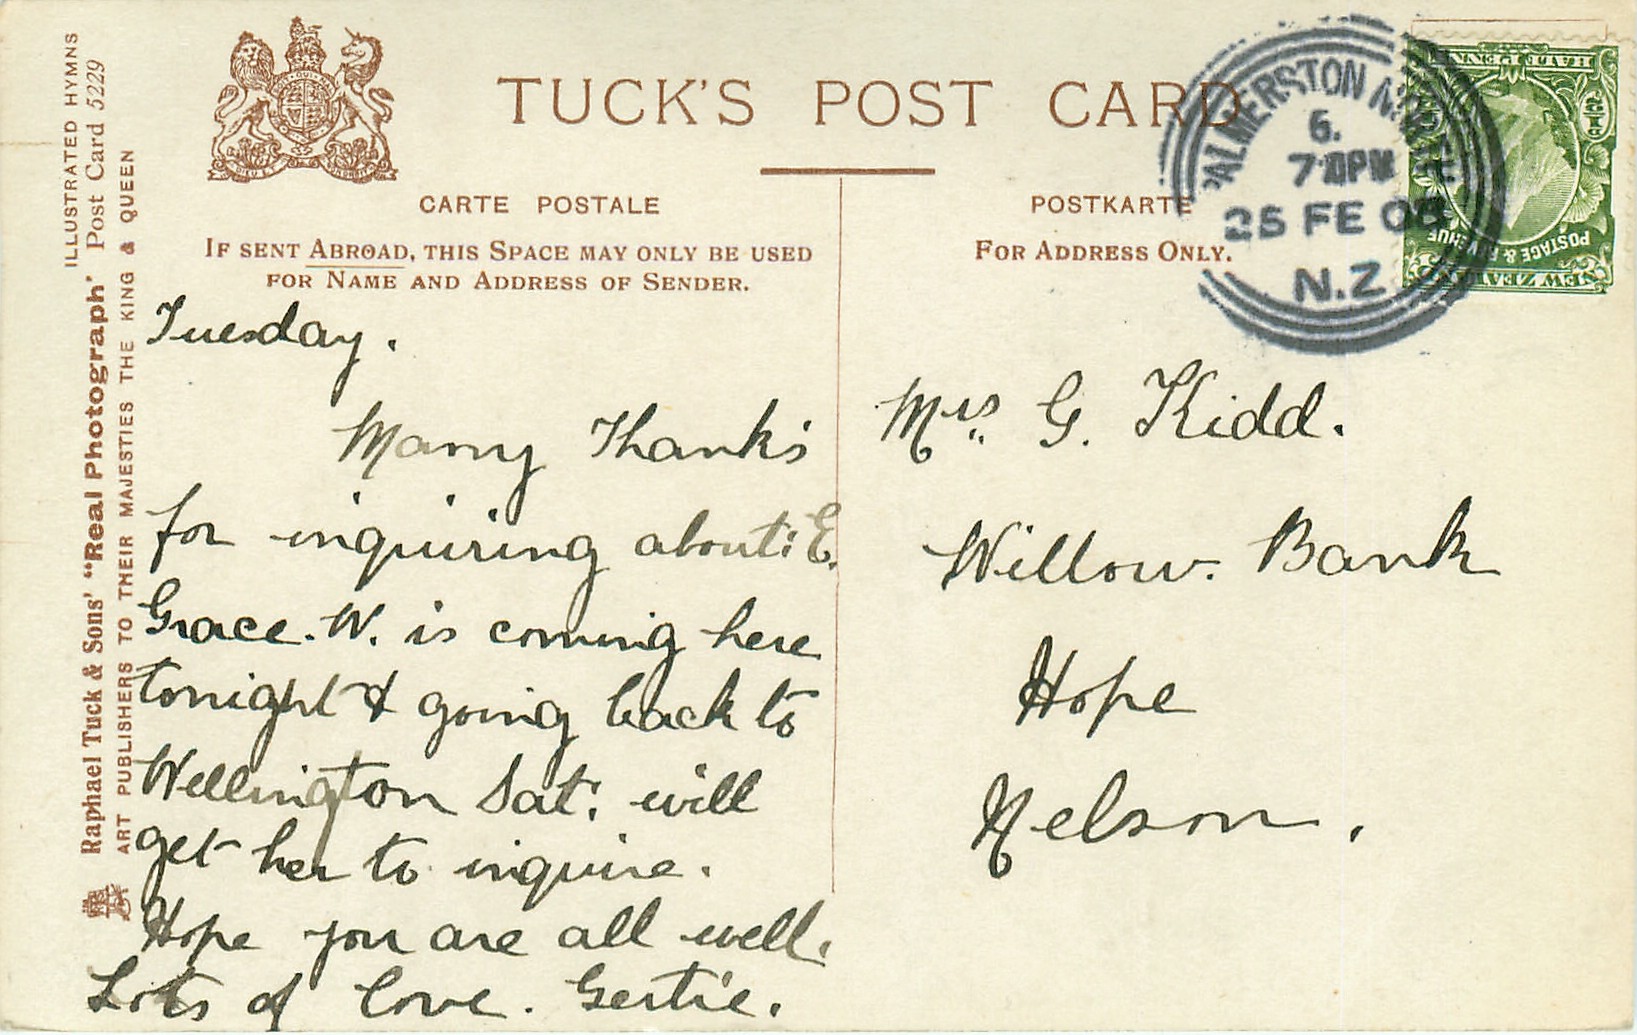 ILLUSTRATED HYMNS
Raphael Tuck & Sons' "Real Photograph" Post Card 5229
ART PUBLISHERS TO THEIR MAJESTIES THE KING & QUEEN
TUCK'S POST CARD
CARTE POSTALE
IF SENT ABROAD, THIS SPACE MAY ONLY BE USED
FOR NAME AND ADDRESS OF SENDER.
Tuesday.
Many Thanks
for inquiring about: E.
Grace. W. is coming here
tonight & going back to
Wellington Sat. will
get her to inquire.
Hope you are all well.
Lots of love. Gertie.
POSTKARTE
FOR ADDRESS ONLY.
PALMERSTON NORTH
6.
PM
25 FE 08
N.Z
NEW ZEALAND
POSTAGE & REVENUE
HALF PENNY
Mrs. G. Kidd.
Willow. Bank
Hope
Nelson.